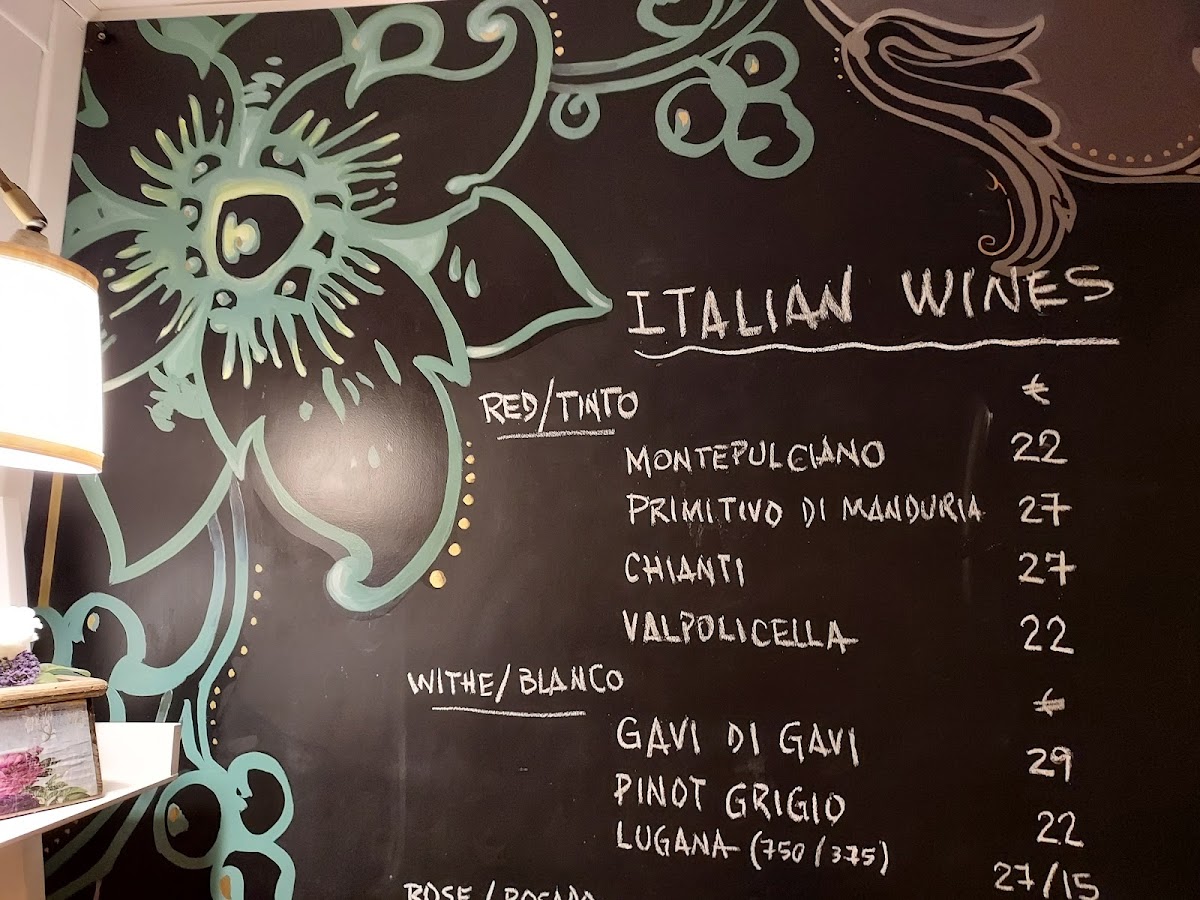 ITALIAN WINES
RED/TINTO €
MONTEPULCIANO 22
PRIMITIVO DI MANDURIA 27
CHIANTI 27
VALPOLICELLA 22
WITHE/BLANCO €
GAVI DI GAVI 29
PINOT GRIGIO 22
LUGANA (750/375) 27/15
ROSE/ROSADO